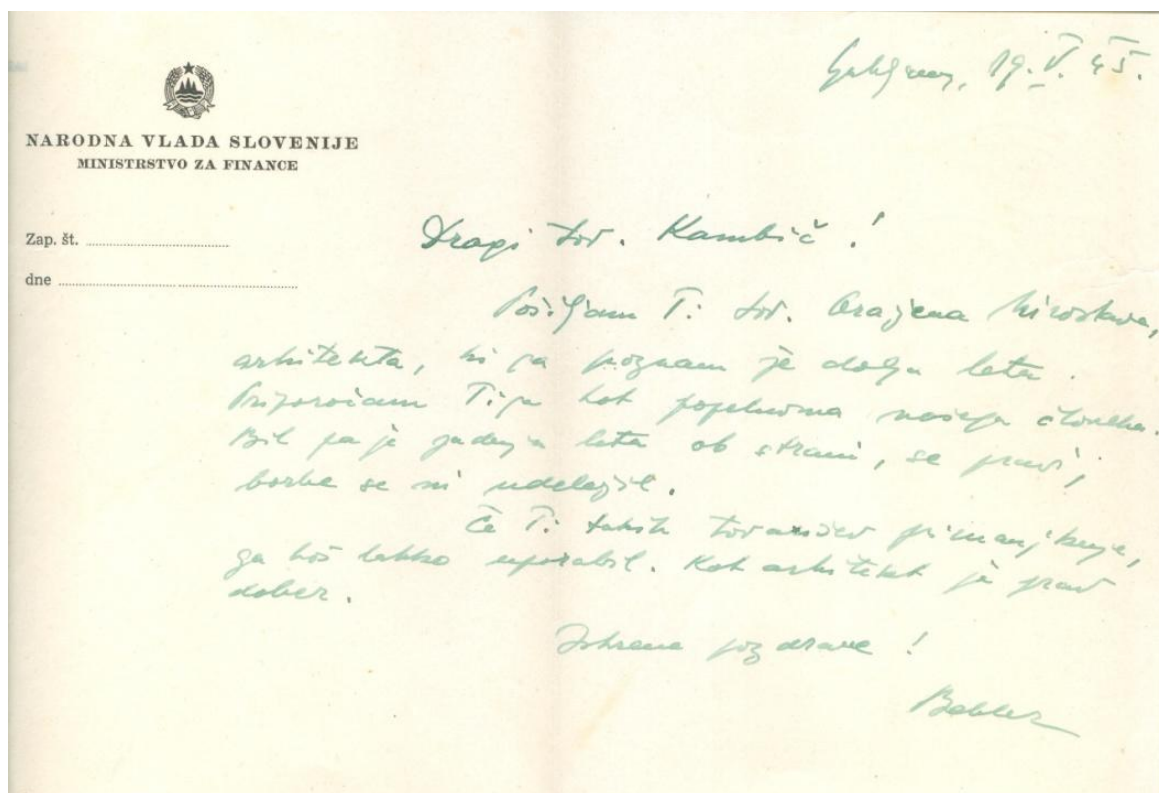 Ljubljana, 19.V.45.
NARODNA VLADA SLOVENIJE
MINISTRSTVO ZA FINANCE
Zap. št.
dne
Dragi tov. Kambič!
Pošiljam Ti tov. Oražena Miroslava,
arhitekta, ki ga poznam že dolga leta.
Priporočam Ti ga kot popolnoma našega človeka.
Bil pa je zadnja leta ob strani, se pravi,
borbe se ni udeležil.
Če Ti takih tovarišev primanjkuje,
ga boš lahko uporabil. Kot arhitekt je prav
dober.
Iskrene pozdrave!
Bebler